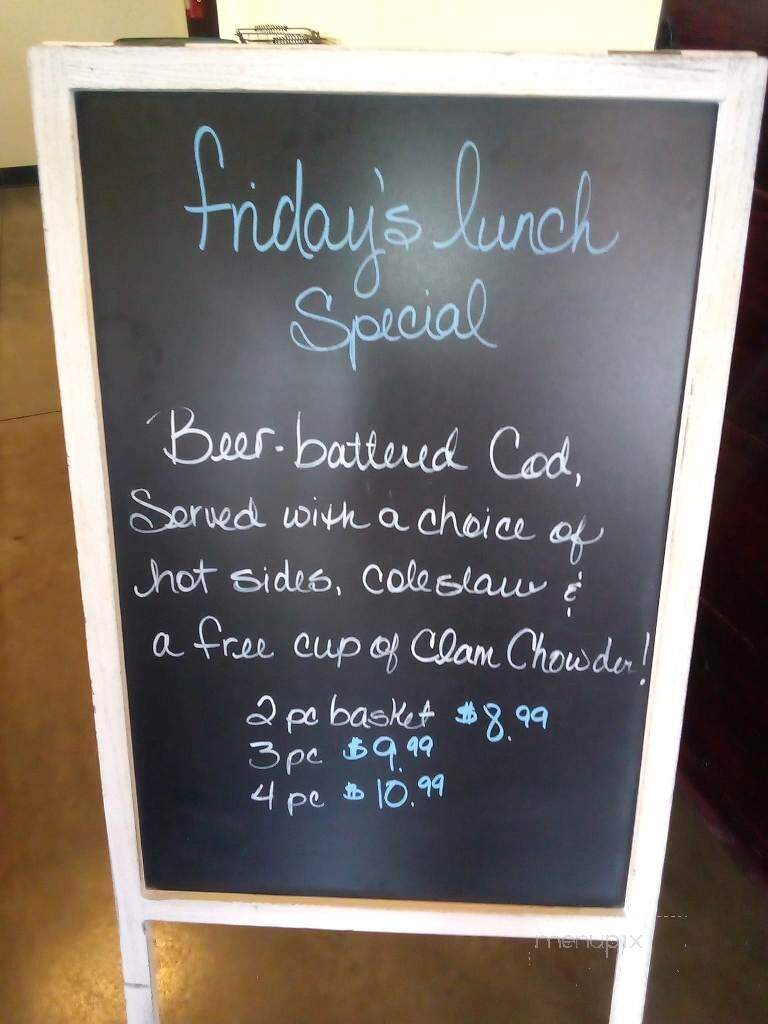 Friday's lunch
Special
Beer-battered Cod,
Served with a choice of
hot sides, coleslaw &
a free cup of Clam Chowder!
2 pc basket $8.99
3 pc $9.99
4 pc $10.99
menupix